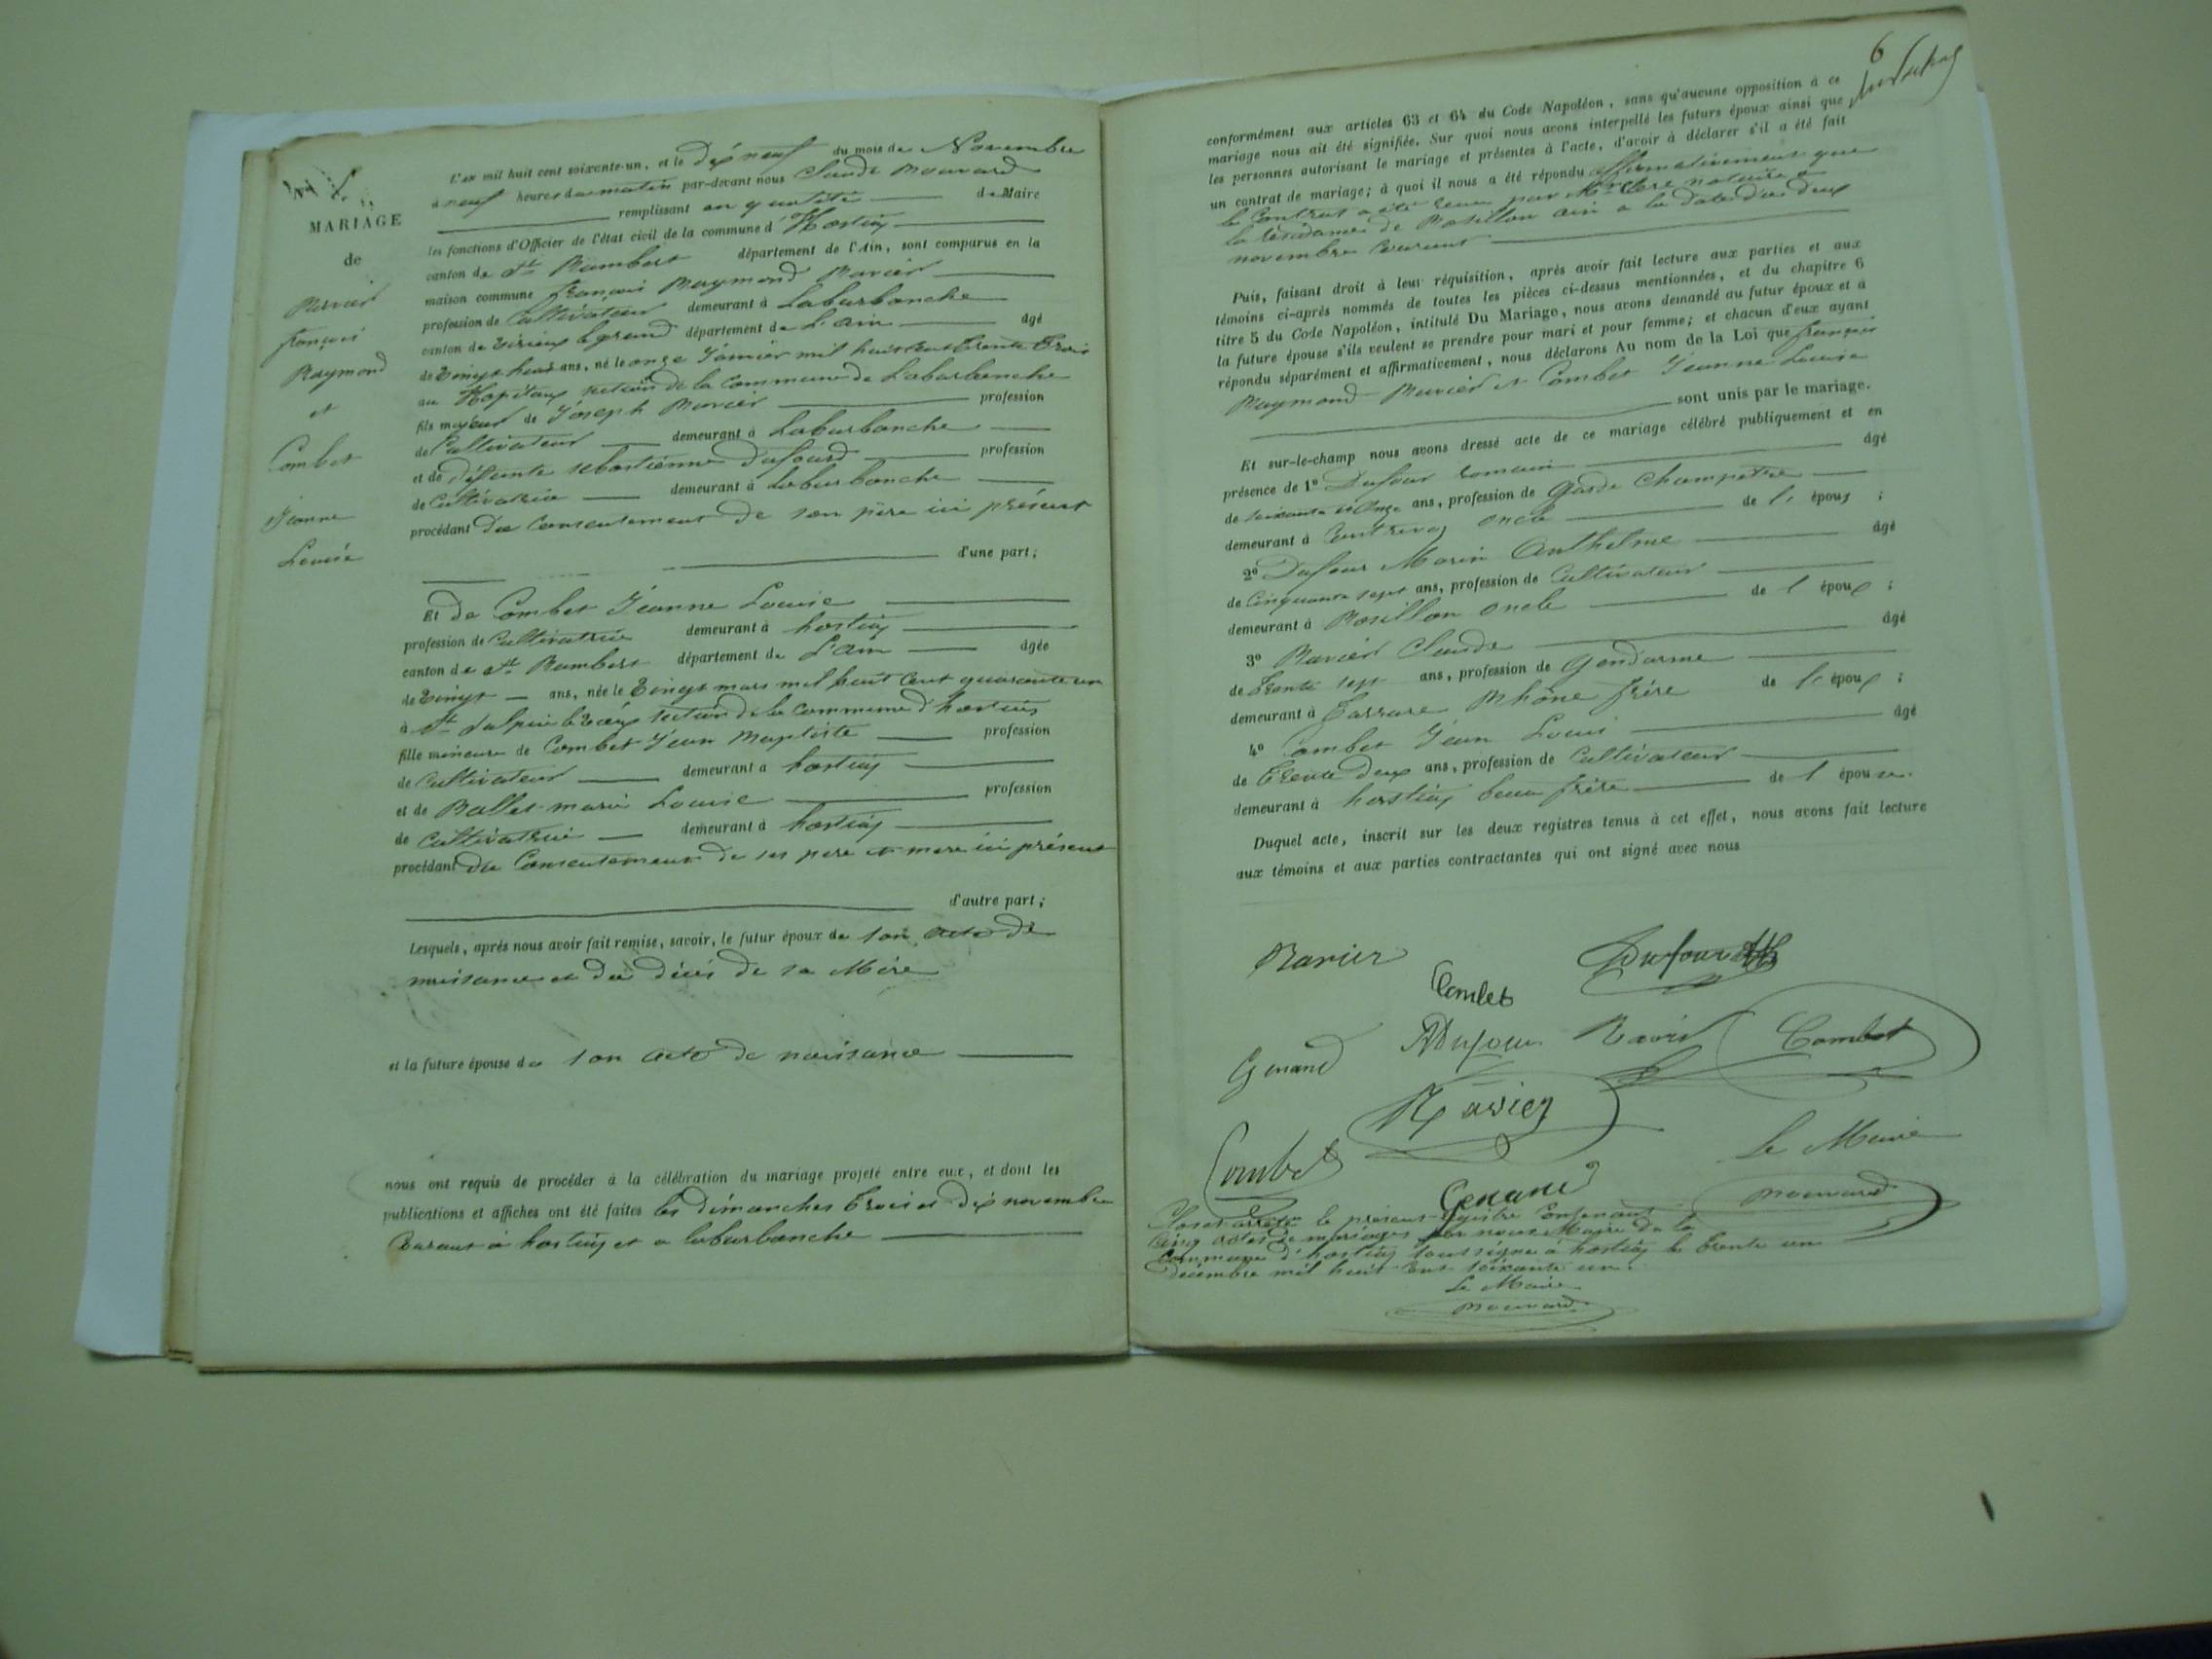 MARIAGE
de
Ravier
françois
Raymond
et
Combet
Jeanne
Louise
L'an mil huit cent soixante-un, et le dix neuf du mois de Novembre
à neuf heures du matin par-devant nous Claude
remplissant en qualité de Maire
les fonctions d'Officier de l'état civil de la commune d'hostiaz
canton de St Rambert département de l'Ain, sont comparus en la
maison commune françois Raymond Ravier
profession de Cultivateur demeurant à Laburbanche
canton de Virieux le grand département de L'ain âgé
de Vingt huit ans, né le onze Janvier mil huit Cent Trente Trois
au Hopitaux section de la Commune de Laburbanche
fils majeur de Joseph Ravier profession
de Cultivateur demeurant à Laburbanche
et de déffunte sebastienne Dufour profession
de Cultivatrice demeurant à Laburbanche
procédant du Consentement de son père ici présent
d'une part;
Et de Combet Jeanne Louise
profession de Cultivatrice demeurant à hostiaz
canton de St Rambert département de L'ain âgée
de Vingt ans, née le Vingt mars mil huit Cent quarante un
à St Sulpice le Vieux section de la Commune d'hostiaz
fille mineure de Combet Jean Baptiste profession
de Cultivateur demeurant à hostiaz
et de Ballet marie Louise profession
de Cultivatrice demeurant à hostiaz
procédant du Consentement de ses pere et mere ici présent
d'autre part;
Lesquels, après nous avoir fait remise, savoir, le futur époux de son acte de
naissance et du décès de sa Mère
et la future épouse de son acte de naissance
nous ont requis de procéder à la célébration du mariage projeté entre eux, et dont les
publications et affiches ont été faites les dimanches Trois et dix novembre
Courant à hostiaz et a laburbanche
6
conformément aux articles 63 et 64 du Code Napoléon, sans qu'aucune opposition à ce
mariage nous ait été signifiée. Sur quoi nous avons interpellé les futurs époux ainsi que
les personnes autorisant le mariage et présentes à l'acte, d'avoir à déclarer s'il a été fait
un contrat de mariage; à quoi il nous a été répondu affirmativement que
le Contrat a été reçu par Me notaire a
la résidence de Rossillon ain a la date du deux
novembre Courant
Puis, faisant droit à leur réquisition, après avoir fait lecture aux parties et aux
témoins ci-après nommés de toutes les pièces ci-dessus mentionnées, et du chapitre 6
titre 5 du Code Napoléon, intitulé Du Mariage, nous avons demandé au futur époux et à
la future épouse s'ils veulent se prendre pour mari et pour femme; et chacun d'eux ayant
répondu séparément et affirmativement, nous déclarons Au nom de la Loi que françois
Raymond Ravier et Combet Jeanne Louise
sont unis par le mariage.
Et sur-le-champ nous avons dressé acte de ce mariage célébré publiquement et en
présence de 1º Dufour romain âgé
de soixante et Onze ans, profession de Garde Champetre
demeurant à Contrevoz oncle de l'époux;
2º Dufour Marin Anthelme âgé
de Cinquante sept ans, profession de Cultivateur
demeurant à Rosillon oncle de l'époux;
3º Ravier Claude âgé
de Trente sept ans, profession de Gendarme
demeurant à Tarrare Rhône frère de l'époux;
4º Combet Jean Louis âgé
de Trente Deux ans, profession de Cultivateur
demeurant à hostiaz beau frère de l'épouse.
Duquel acte, inscrit sur les deux registres tenus à cet effet, nous avons fait lecture
aux témoins et aux parties contractantes qui ont signé avec nous
Ravier
Combet
Dufour
Genand
Dufour
Ravier
Combet
Ravier
Combet
Le Maire
Genand
Clos et arrêté le présent registre Contenant
Cinq actes de mariages par nous Maire de la
Commune d'hostiaz soussigné à hostiaz le Trente un
décembre mil huit Cent soixante un.
Le Maire